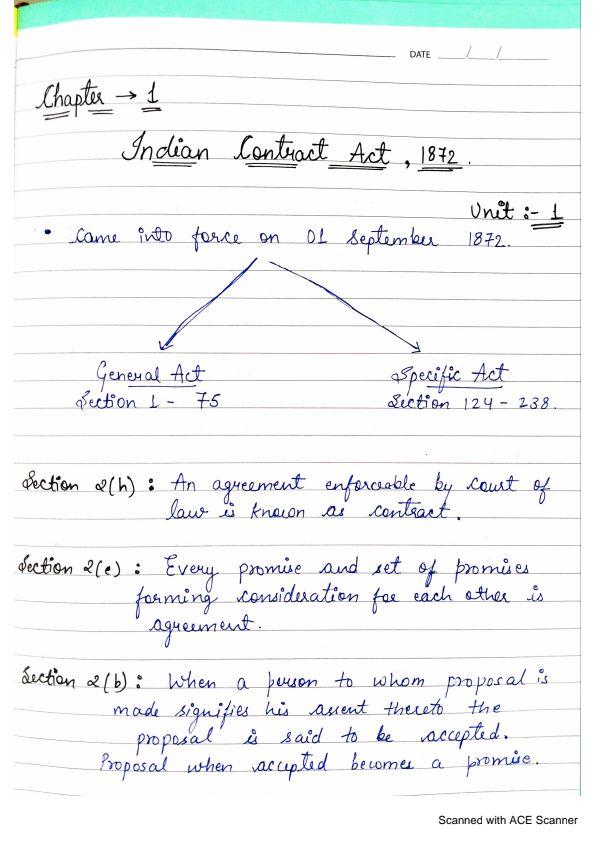 DATE __/__/__
Chapter → 1
Indian Contract Act, 1872.
Unit :- 1
• Came into force on 01 September 1872.
General Act
Section 1 - 75
Specific Act
Section 124 - 238.
Section 2(h) : An agreement enforceable by court of
law is known as contract.
Section 2(e) : Every promise and set of promises
forming consideration for each other is
agreement.
Section 2(b) : When a person to whom proposal is
made signifies his assent thereto the
proposal is said to be accepted.
Proposal when accepted becomes a promise.
Scanned with ACE Scanner